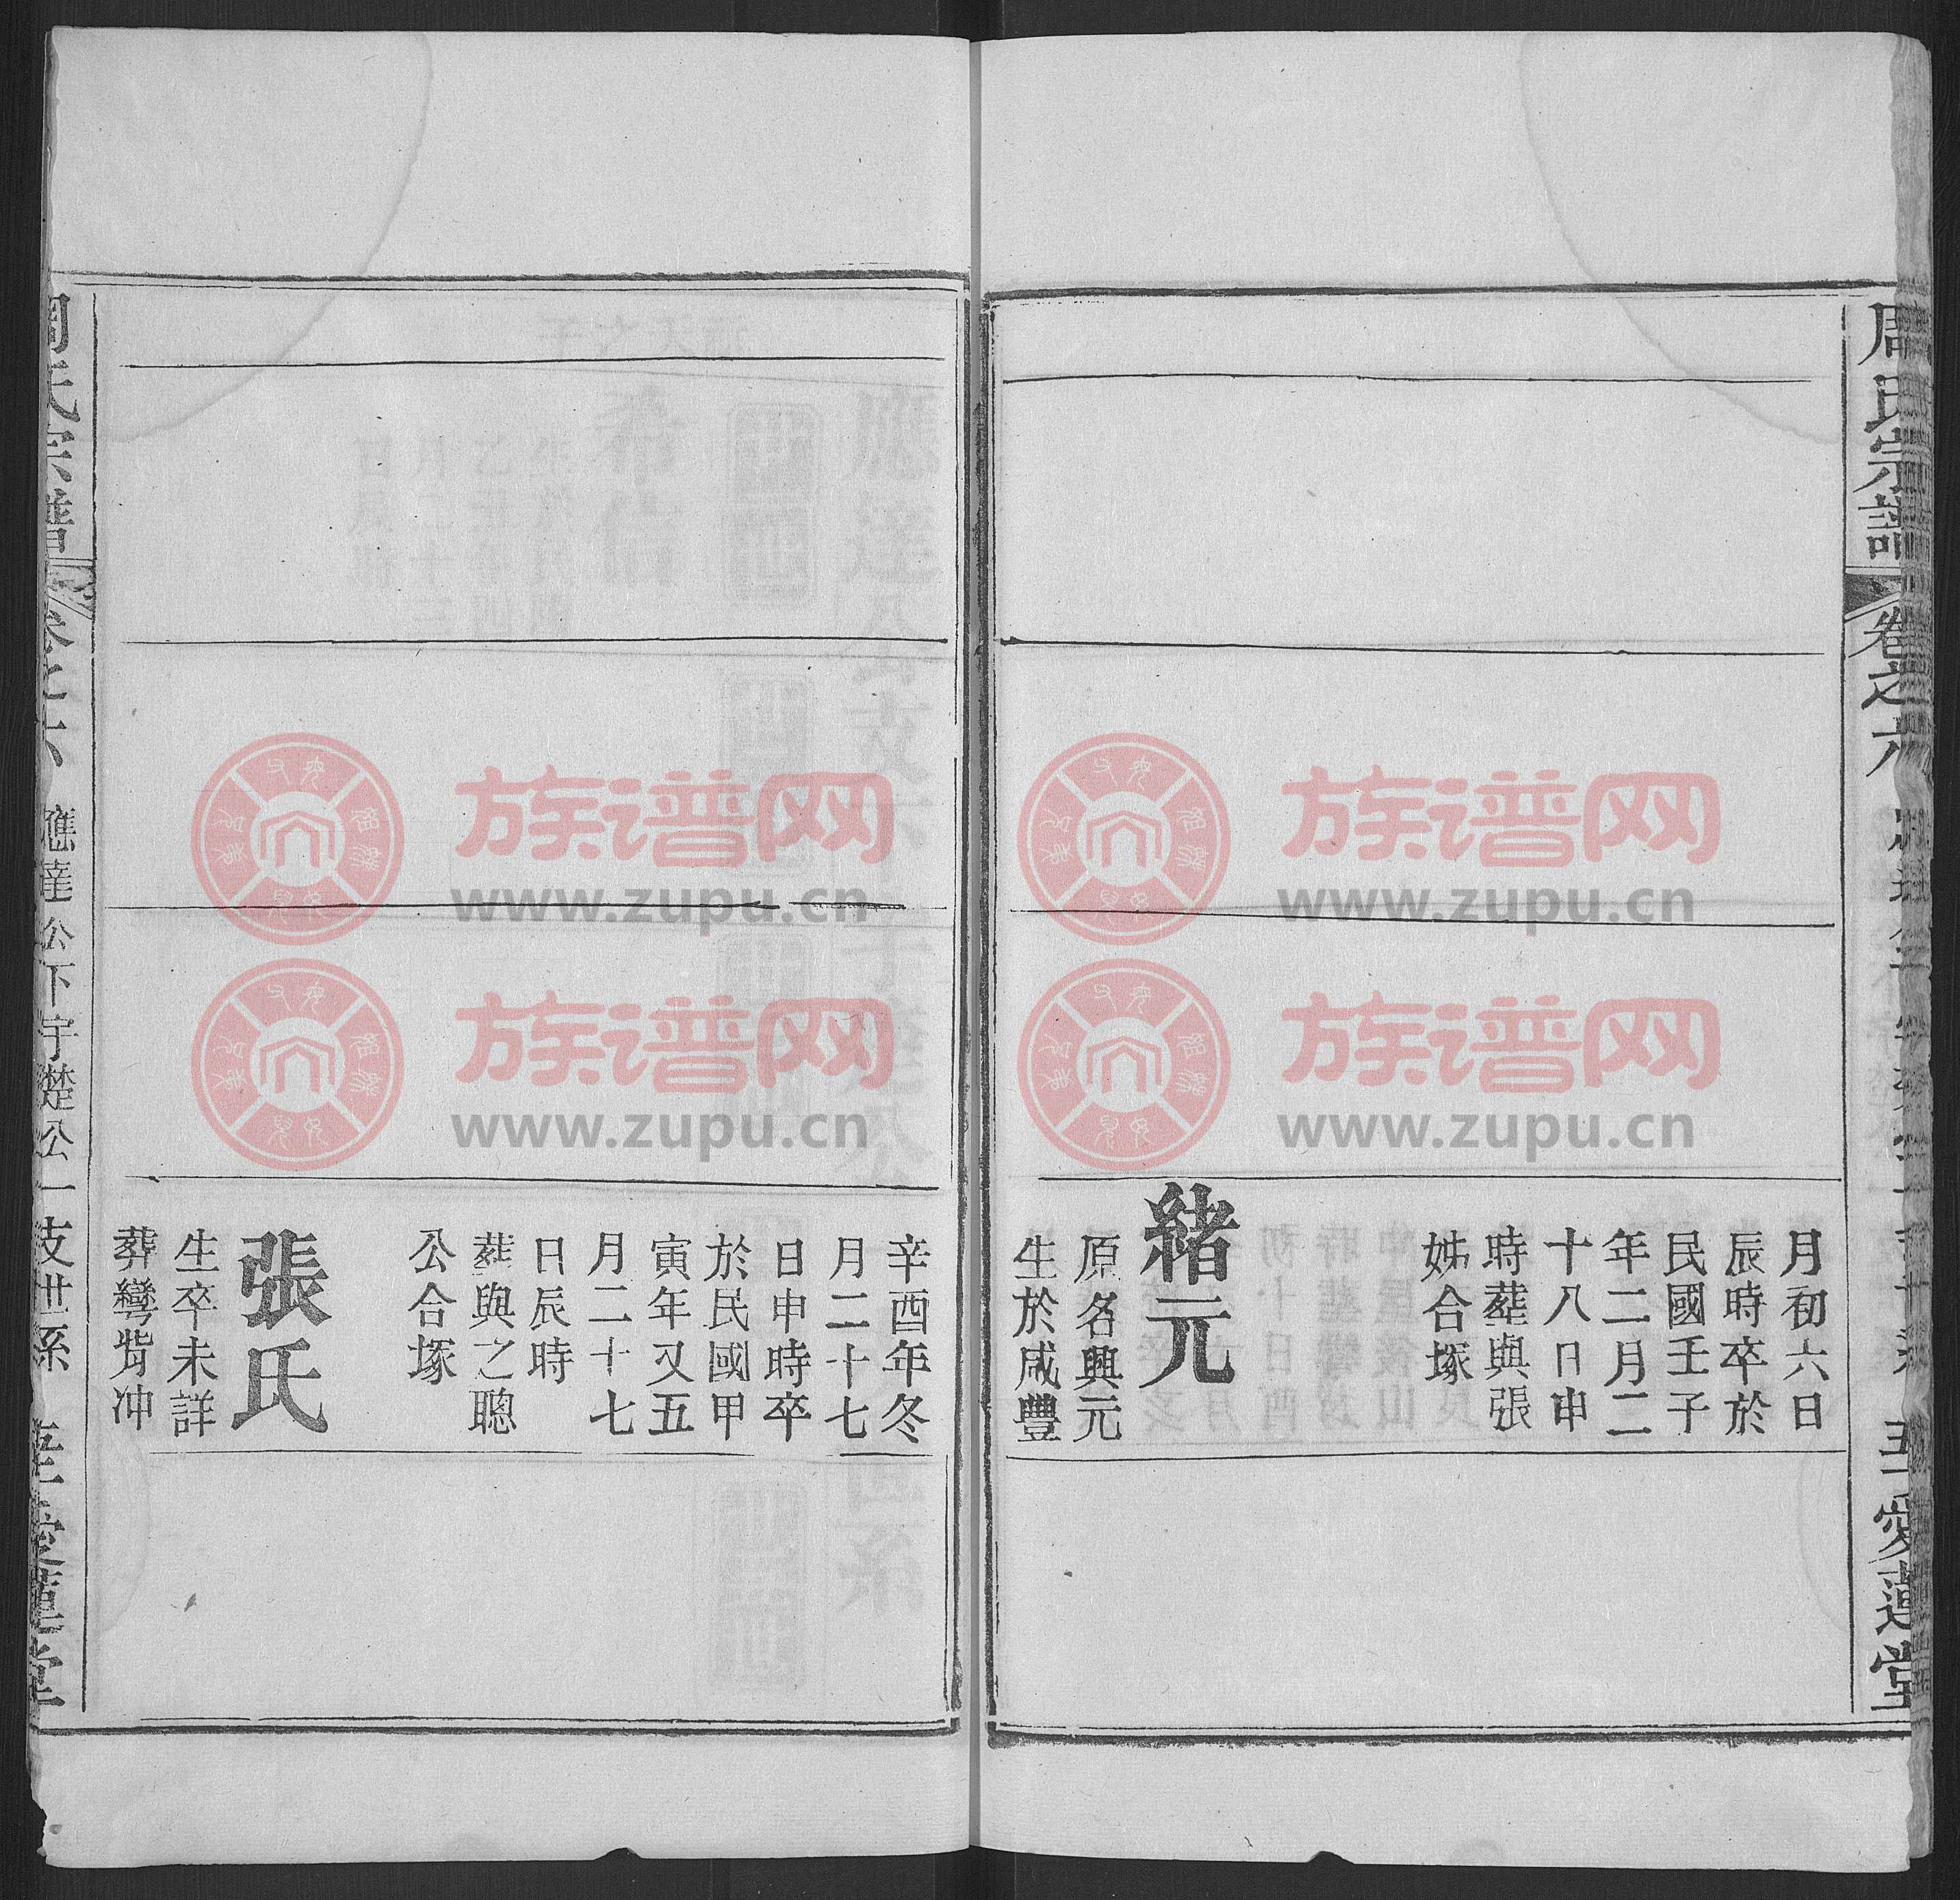 周氏宗譜
卷之六
五
愛蓮堂
月初六日
辰時卒於
民國壬子
年二月二
十八日申
時葬與張
姊合塚
緒元
原名興元
生於咸豐
辛酉年冬
月二十七
日申時卒
於民國甲
寅年又五
月二十七
日辰時
葬與之聰
公合塚
張氏
生卒未詳
葬彎背冲
周氏宗譜
卷之六
應達公下宇楚公一支世系
愛蓮堂
族谱网
www.zupu.cn
族谱网
www.zupu.cn
族谱网
www.zupu.cn
族谱网
www.zupu.cn